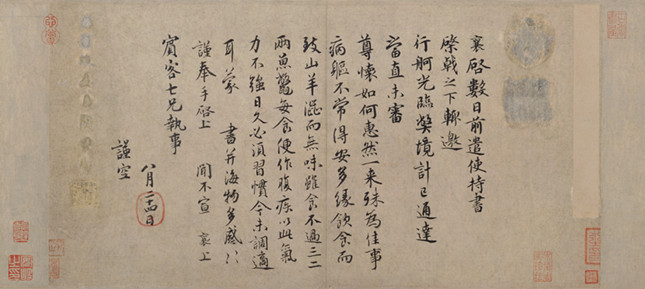 襄啓數日前遣使持書
棨戟之下輒邀
行舸光臨獘境計已通達
當直未審
尊懷如何惠然一来殊為佳事
病軀不常得安多緣飲食而
致山羊澀而無味雖食不過三二
兩魚鱉每食便作腹疾以此氣
力不強日久必須習慣今未調適
耳蒙 書并海物多感〻
謹奉手啓上 聞不宣 襄上
賓客七兄執事
八月二十四日
謹空